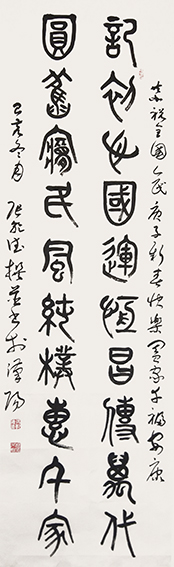 恭祝全國人民庚子新春快樂闔家幸福安康
記初心國運恒昌傳萬代
圓舊夢民風純樸惠千家
己亥冬月 德撰並書於漢陽